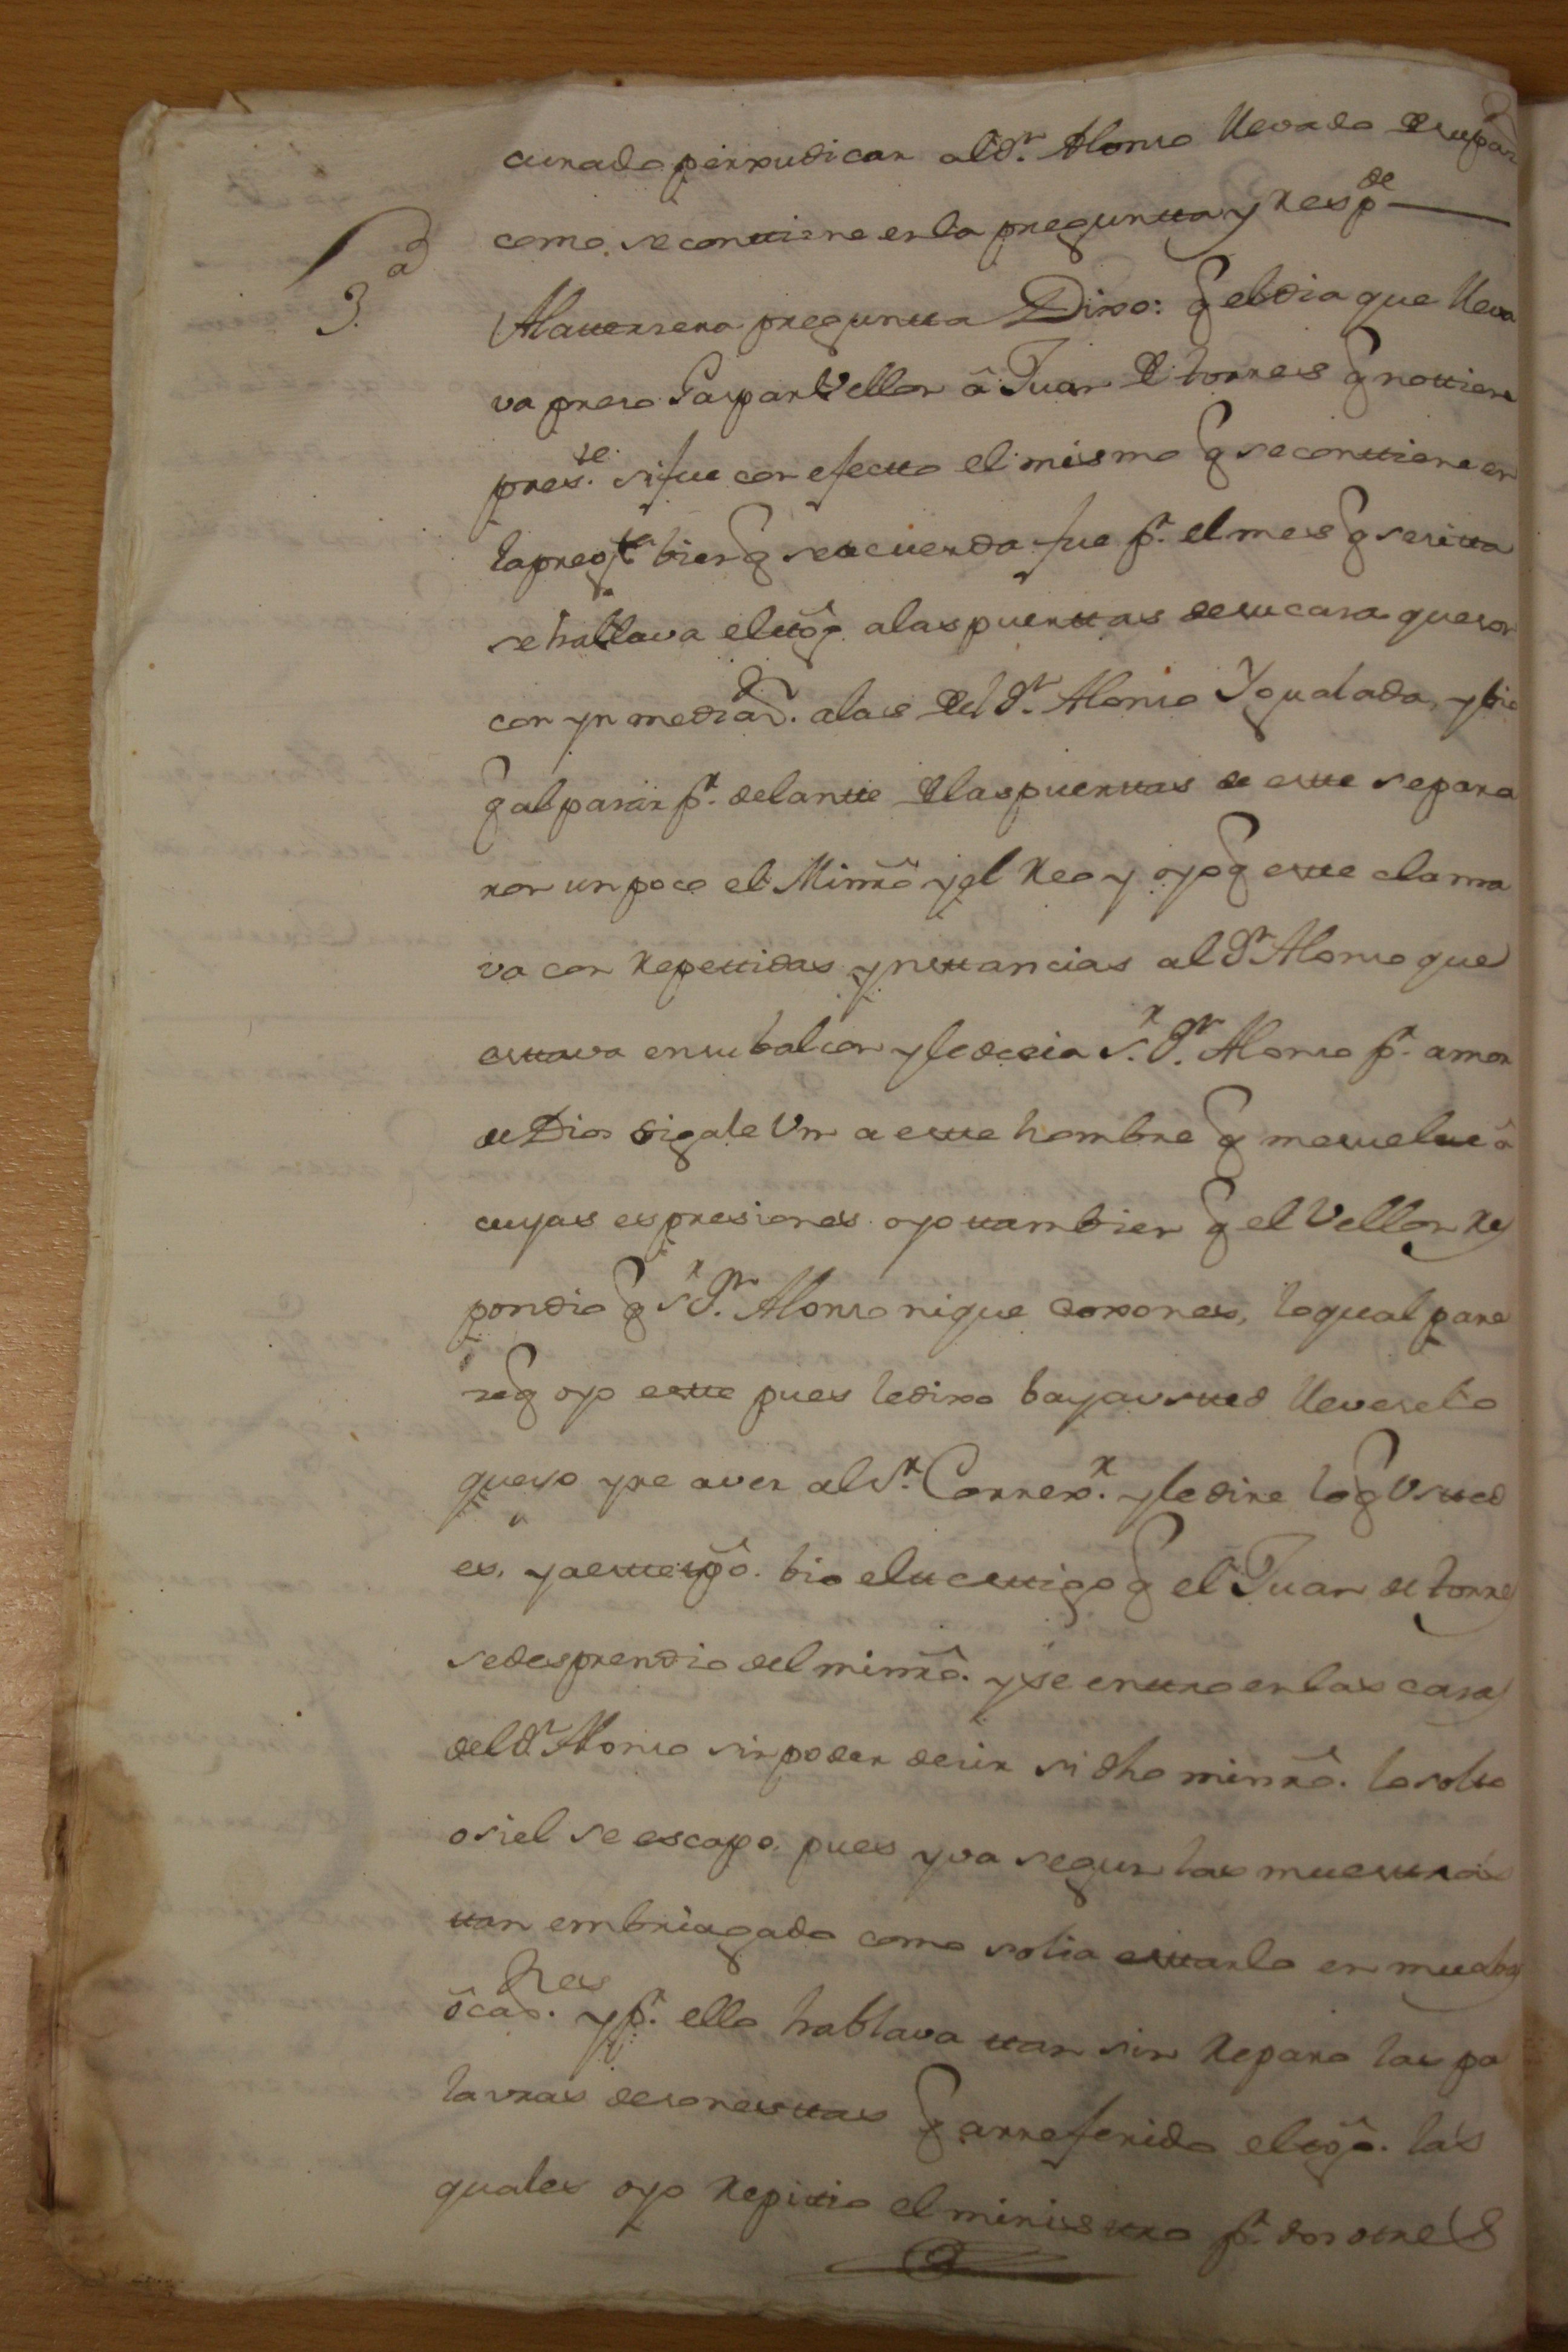 curado perxudicar al Dn. Alonso llevado de su par
como se contiene en la pregunta y Respde
3a
A la tersera pregunta Dixo: q el dia que lleva
va preso Gaspar Vellon â Juan de torres q no tiene
preste. si fue con efecto el mismo q se contiene en
la pregta bien q se acuerda fue pr. el mes q se sita
se hallava el tgô. a las puertas de su casa que son
con ynmediaon. a las del Dn. Alonso Ygualada, y bio
q al pasar pr. delante de las puertas de este se para
ron un poco el Minrô y el Reo y oyo q este clama
va con Repetidas ynstancias al Dn Alonso que
estava en su balcon y le desia Sr. Dn. Alonso pr. amor
de Dios digale Vm a este hombre q me suelte â
cuyas espresiones oyo tambien q el Vellon Res
pondio q Sr Dn. Alonso ni que coxones, lo qual pare
se q oyo este pues le dixo baya usted lleveselo
que yo yre a ver al Sr. Correxr. y le dire lo q Usted
es, y a este tpô. bio el testigo q el Juan de torres
se desprendio del minrô. y se entro en las casas
del Dn Alonso sin poder desir si dho minrô. lo solto
o si el se escapo, pues yva segun las muestras
tan embriagado como solia estarlo en muchas
ôcaones. y pr. ello hablava tan sin Reparo las pa
lavras desonestas q a rreferido el tgô. las
quales oyo Repitio el ministro pr. dos o tres